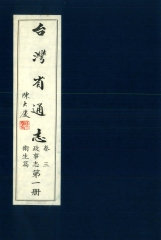 台灣省通志
卷三
政事志
衛生篇
第一冊
陳大慶